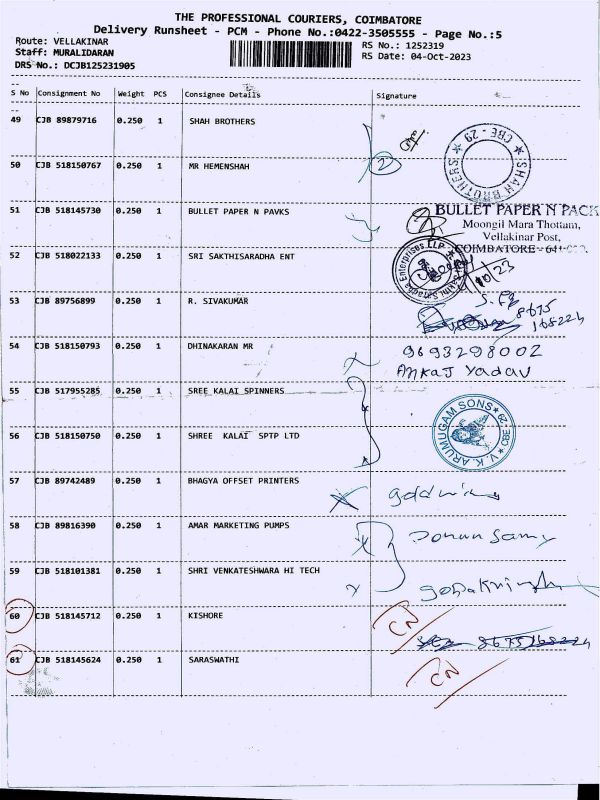 THE PROFESSIONAL COURIERS, COIMBATORE
Delivery Runsheet - PCM - Phone No.:0422-3505555 - Page No.:5
Route: VELLAKINAR RS No.: 1252319
Staff: MURALIDARAN RS Date: 04-Oct-2023
DRS No.: DCJB125231905
S No Consignment No Weight PCS Consignee Details Signature
49 CJB 89879716 0.250 1 SHAH BROTHERS
★ SHAH BROTHERS ★ CBE - 29
50 CJB 518150767 0.250 1 MR HEMENSHAH 2
51 CJB 518145730 0.250 1 BULLET PAPER N PAVKS
BULLET PAPER N PACK
Moongil Mara Thottam,
Vellakinar Post,
COIMBATORE - 641
52 CJB 518022133 0.250 1 SRI SAKTHISARADHA ENT
Enterprises LLP
53 CJB 89756899 0.250 1 R. SIVAKUMAR
8675
168224
54 CJB 518150793 0.250 1 DHINAKARAN MR
9693298002
Ankaj Yadav
55 CJB 517955285 0.250 1 SREE KALAI SPINNERS
★ V.K. ARUMUGAM SONS ★ CBE - 29
56 CJB 518150750 0.250 1 SHREE KALAI SPTP LTD
57 CJB 89742489 0.250 1 BHAGYA OFFSET PRINTERS
58 CJB 89816390 0.250 1 AMAR MARKETING PUMPS
59 CJB 518101381 0.250 1 SHRI VENKATESHWARA HI TECH
60 CJB 518145712 0.250 1 KISHORE CN
8675168224
61 CJB 518145624 0.250 1 SARASWATHI CN